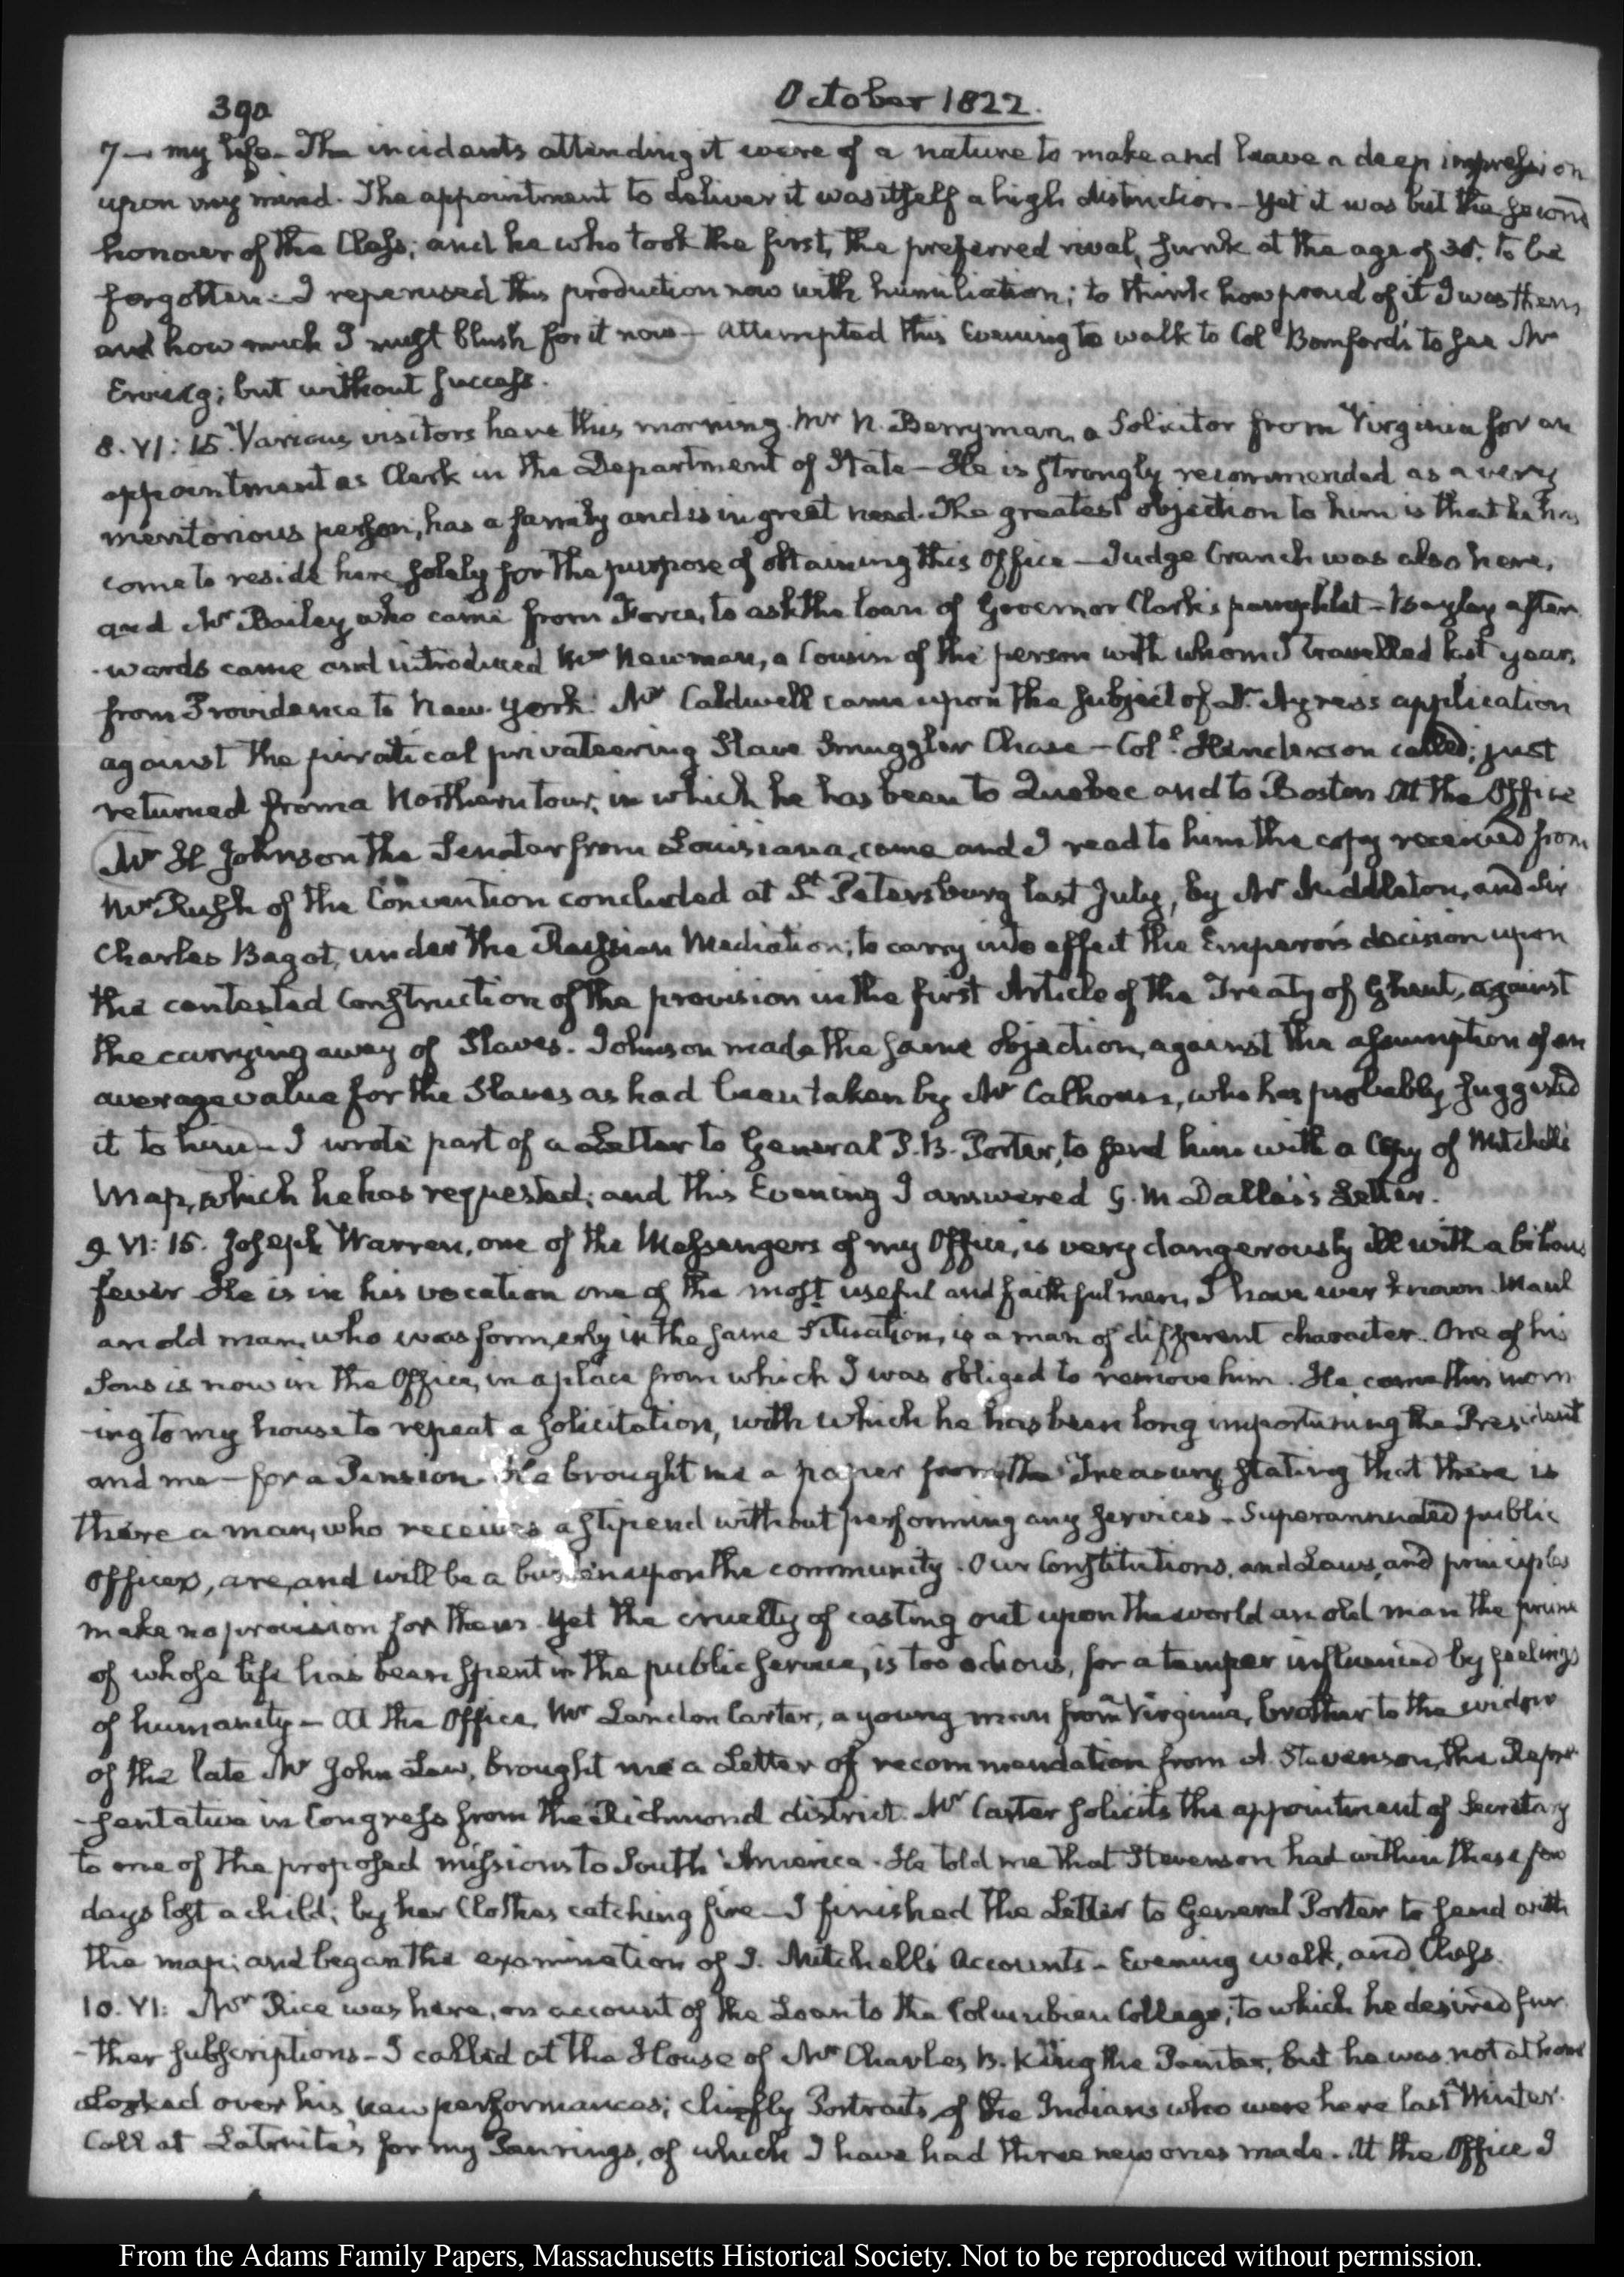 390
October 1822.
7— my life. The incidents attending it were of a nature to make and leave a deep impression
upon my mind. The appointment to deliver it was itself a high distinction — Yet it was but the second
honour of the Class; and he who took the first, the preferred rival, sunk at the age of 35. to be
forgotten. I reperused this production now with humiliation; to think how proud of it I was then,
and how much I must blush for it now — Attempted this Evening to walk to Coll. Bomford's to see Mr
Erving; but without success.
8. VI: 15. Various visitors here this morning. Mr N. Berryman, a Solicitor from Virginia for an
appointment as Clerk in the Department of State — He is strongly recommended as a very
meritorious person, has a family and is in great need. The greatest objection to him is that he has
come to reside here solely for the purpose of obtaining this Office — Judge Cranch was also here,
and Mr Bailey who came from Force, to ask the loan of Governor Clark's pamphlet — Bayley after
-wards came and introduced Mr Newman, a Cousin of the person with whom I travelled last year,
from Providence to New-York. Mr Caldwell came upon the subject of Dr. Ayres's application
against the piratical privateering Slave Smuggler Chase — Coll. Henderson called; just
returned from a Northern tour, in which he has been to Quebec and to Boston. At the Office
Mr H Johnson the Senator from Louisiana, came and I read to him the copy received from
Mr Rush of the Convention concluded at St Petersburg last July, by Mr Middleton, and Sir
Charles Bagot, under the Russian Mediation; to carry into effect the Emperor's decision upon
the contested Construction of the provision in the first Article of the Treaty of Ghent, against
the carrying away of Slaves. Johnson made the same objection, against the assumption of an
average value for the Slaves as had been taken by Mr Calhoun, who has probably suggested
it to him — I wrote part of a Letter to General P. B. Porter, to send him with a Copy of Mitchell's
Map, which he has requested; and this Evening I answered G. M Dallas's Letter.
9. VI: 15. Joseph Warren, one of the Messengers of my Office, is very dangerously ill with a bilious
fever He is in his vocation one of the most useful and faithful men, I have ever known. Maul
an old man, who was formerly in the same Situation, is a man of different character. One of his
Sons is now in the Office, in a place from which I was obliged to remove him. He came this morn
-ing to my house to repeat a solicitation, with which he has been long importuning the President
and me — for a Pension. He brought me a paper from the Treasury, stating that there is
there a man, who receives a stipend without performing any services — Superannuated public
officers, are, and will be a burden upon the community. Our Constitutions, and Laws, and principles
make no provision for them. Yet the cruelty of casting out upon the world an old man the prime
of whose life has been spent in the public service, is too odious, for a temper influenced by feelings
of humanity — At the Office, Mr Landon Carter, a young man from Virginia, brother to the widow
of the late Mr John Law, brought me a Letter of recommendation from A. Stevenson, the Repre
-sentative in Congress from the Richmond district. Mr Carter solicits the appointment of Secretary
to one of the proposed missions to South America. He told me that Stevenson had within these few
days lost a child; by her Clothes catching fire — I finished the Letter to General Porter to send with
the map; and began the examination of I. Mitchell's Accounts — Evening walk, and Chess.
10. VI: Mr Rice was here, on account of the Loan to the Columbian College; to which he desired fur
-ther subscriptions — I called at the House of Mr Charles B. King the Painter, but he was not at home
Looked over his new performances; chiefly Portraits of the Indians who were here last Winter.
Call at for my of which I have had three new ones made. At the Office I
From the Adams Family Papers, Massachusetts Historical Society. Not to be reproduced without permission.